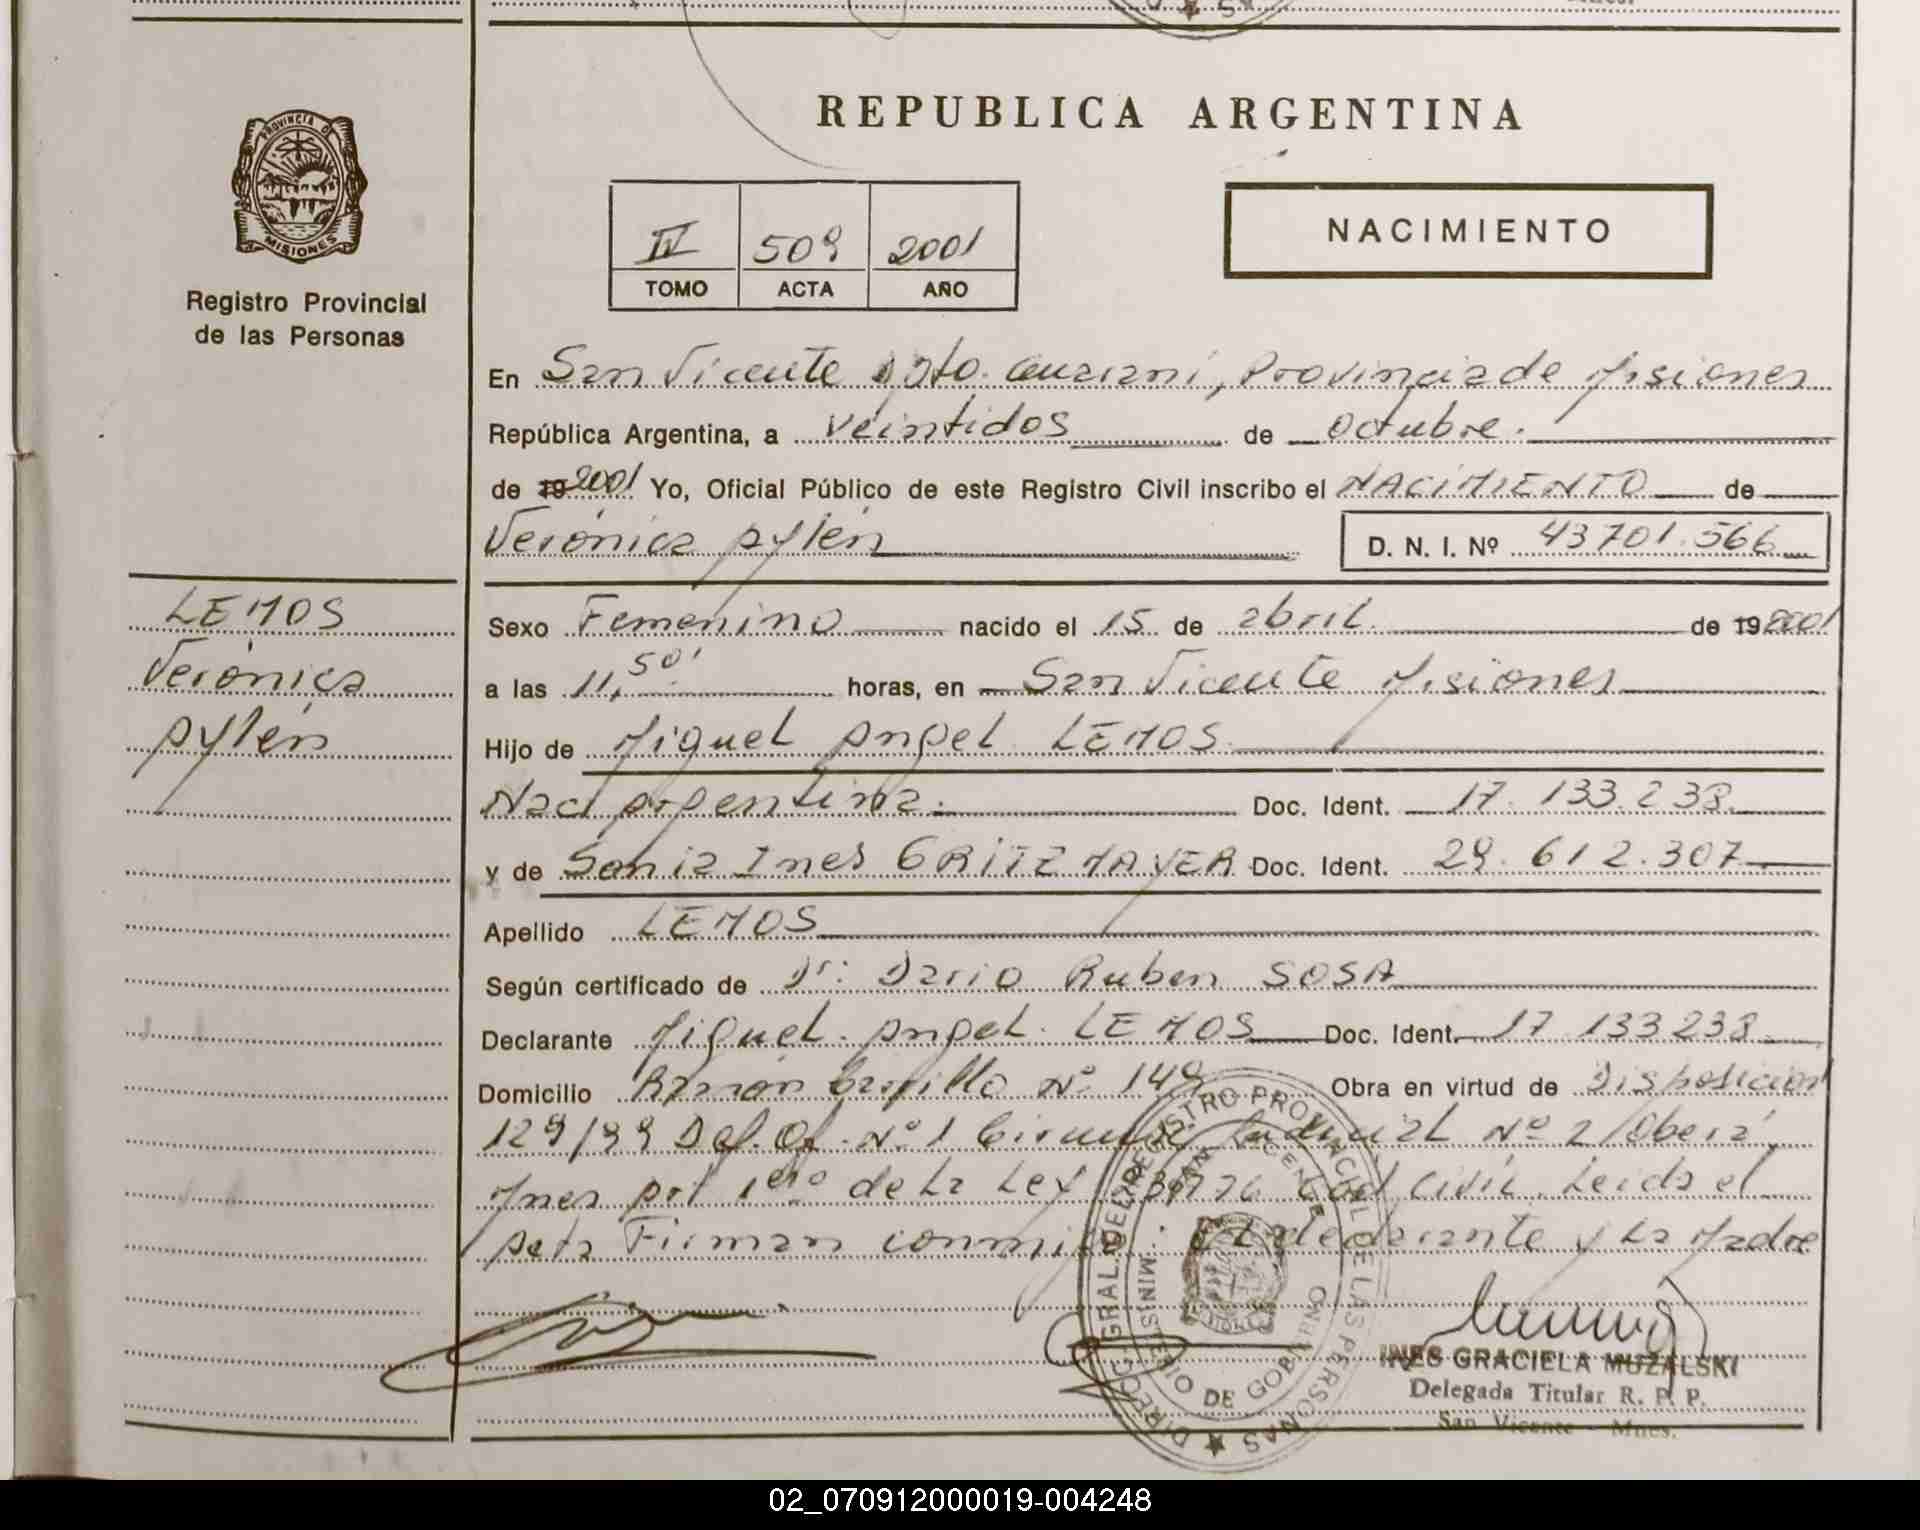 REPUBLICA ARGENTINA
PROVINCIA DE
MISIONES
Registro Provincial
de las Personas
IV 509 2001
TOMO ACTA AÑO
NACIMIENTO
En San Vicente Dpto. Guaraní, Provincia de Misiones
República Argentina, a veintidos de octubre.
de 19 2001 Yo, Oficial Público de este Registro Civil inscribo el NACIMIENTO de
Verónica Aylén D. N. I. Nº 43701.566
LEMOS
Verónica
Aylén
Sexo Femenino nacido el 15 de abril de 19 2001
a las 11,50' horas, en San Vicente Misiones
Hijo de Miguel Angel LEMOS
Nac Argentina. Doc. Ident. 17.133.238
y de Sonia Ines GRITZMAYER Doc. Ident. 29.612.307
Apellido LEMOS
Según certificado de Dr: Dario Ruben SOSA
Declarante Miguel Angel LEMOS Doc. Ident. 17 133238
Domicilio Ramón Carrillo Nº 149 Obra en virtud de Disposicion
129/99 Def. Of. Nº 1 Judicial Nº 2 Oberá,
Mnes 1ero de la Ley Civil. Leida el
Acta Firman conmigo: El declarante y la Madre
DIREC. GRAL. DEL REGISTRO PROVINCIAL DE LAS PERSONAS
MINISTERIO DE GOBIERNO
SAN VICENTE
INES GRACIELA MUZALSKI
Delegada Titular R. P. P.
San Vicente - Mnes.
02_070912000019-004248